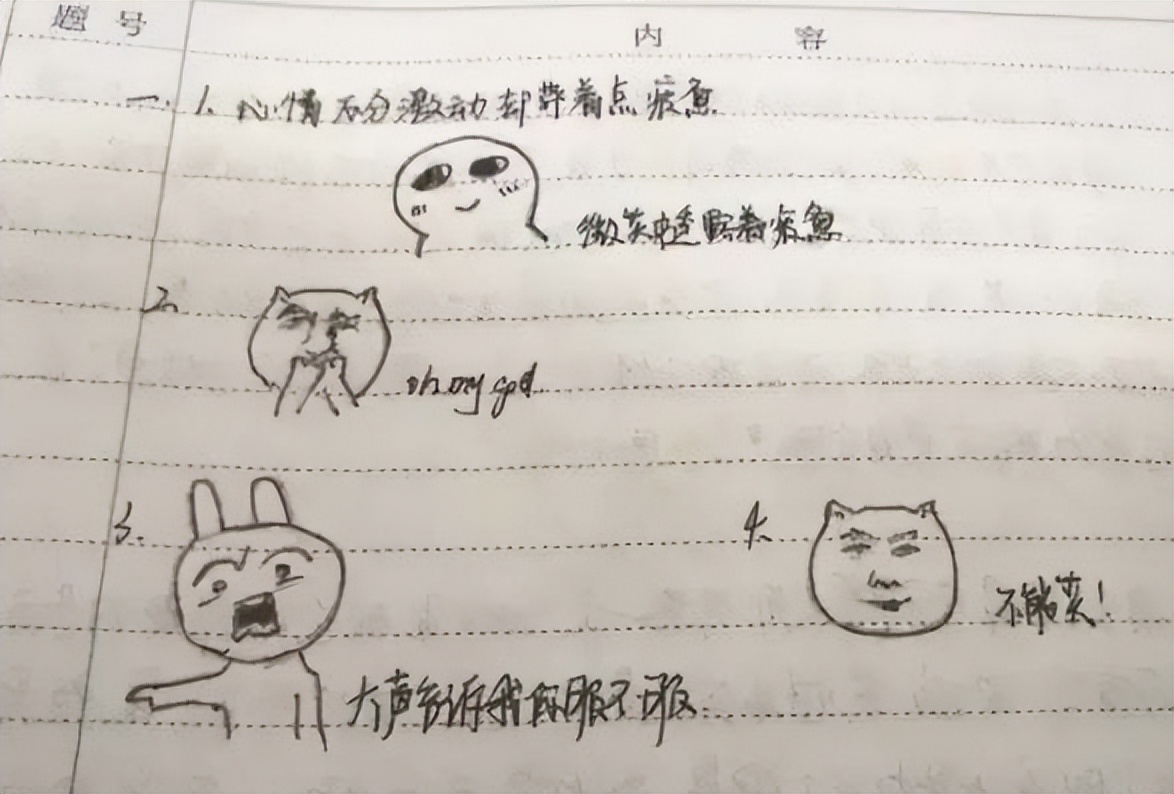 题号 内容
一. 1. 心情十分激动却带着点疲惫
微笑中透露着疲惫
2.
oh my god
3.
4.
不能笑!
大声告诉我你服不服